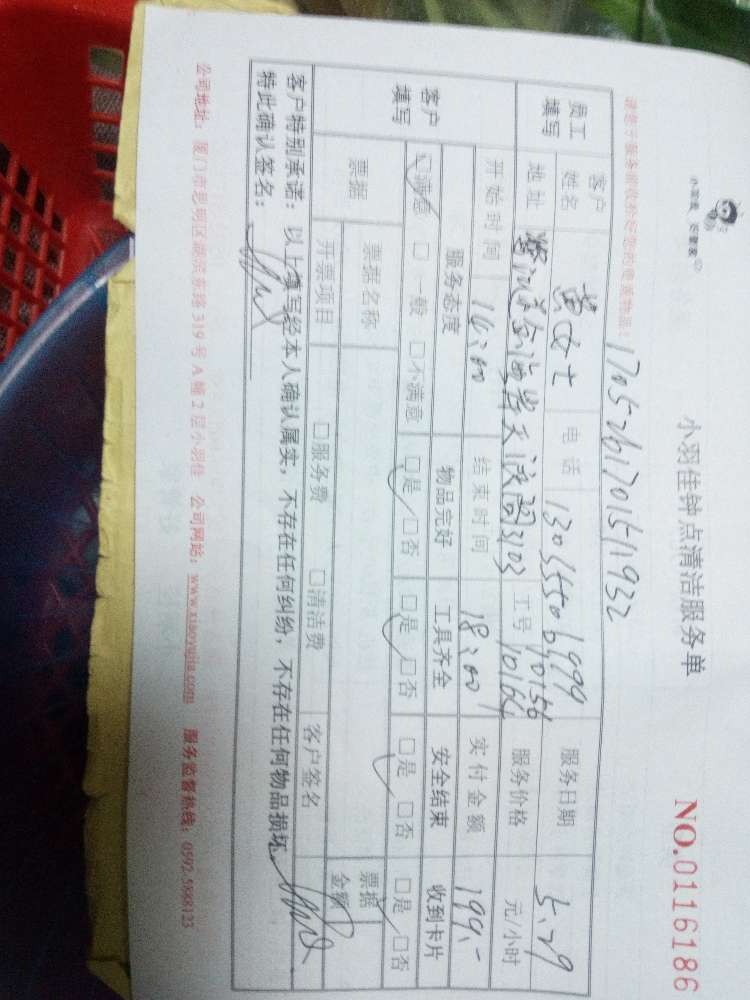 小羽佳 好管家
小羽佳钟点清洁服务单
NO.0116186
170526170151932
客户姓名 黄女士 电话 13055506999 服务日期 5.29
员工填写 地址 3103 工号 10156 10164 服务价格 元/小时
开始时间 14:00 结束时间 18:00 实付金额 199.-
客户填写 服务态度 物品完好 工具齐全 安全结束 收到卡片
☑满意 □一般 □不满意 □是 □否 □是 □否 □是 □否 □是 □否
票据 票据名称 票据金额
开票项目 □服务费 □清洁费 客户签名
客户特别承诺:以上填写经本人确认属实,不存在任何纠纷,不存在任何物品损坏。
特此确认签名:
公司地址:厦门市思明区湖滨东路319号A幢2层小羽佳 公司网站:www.xiaoyujia.com 服务监督热线:0592-5888123